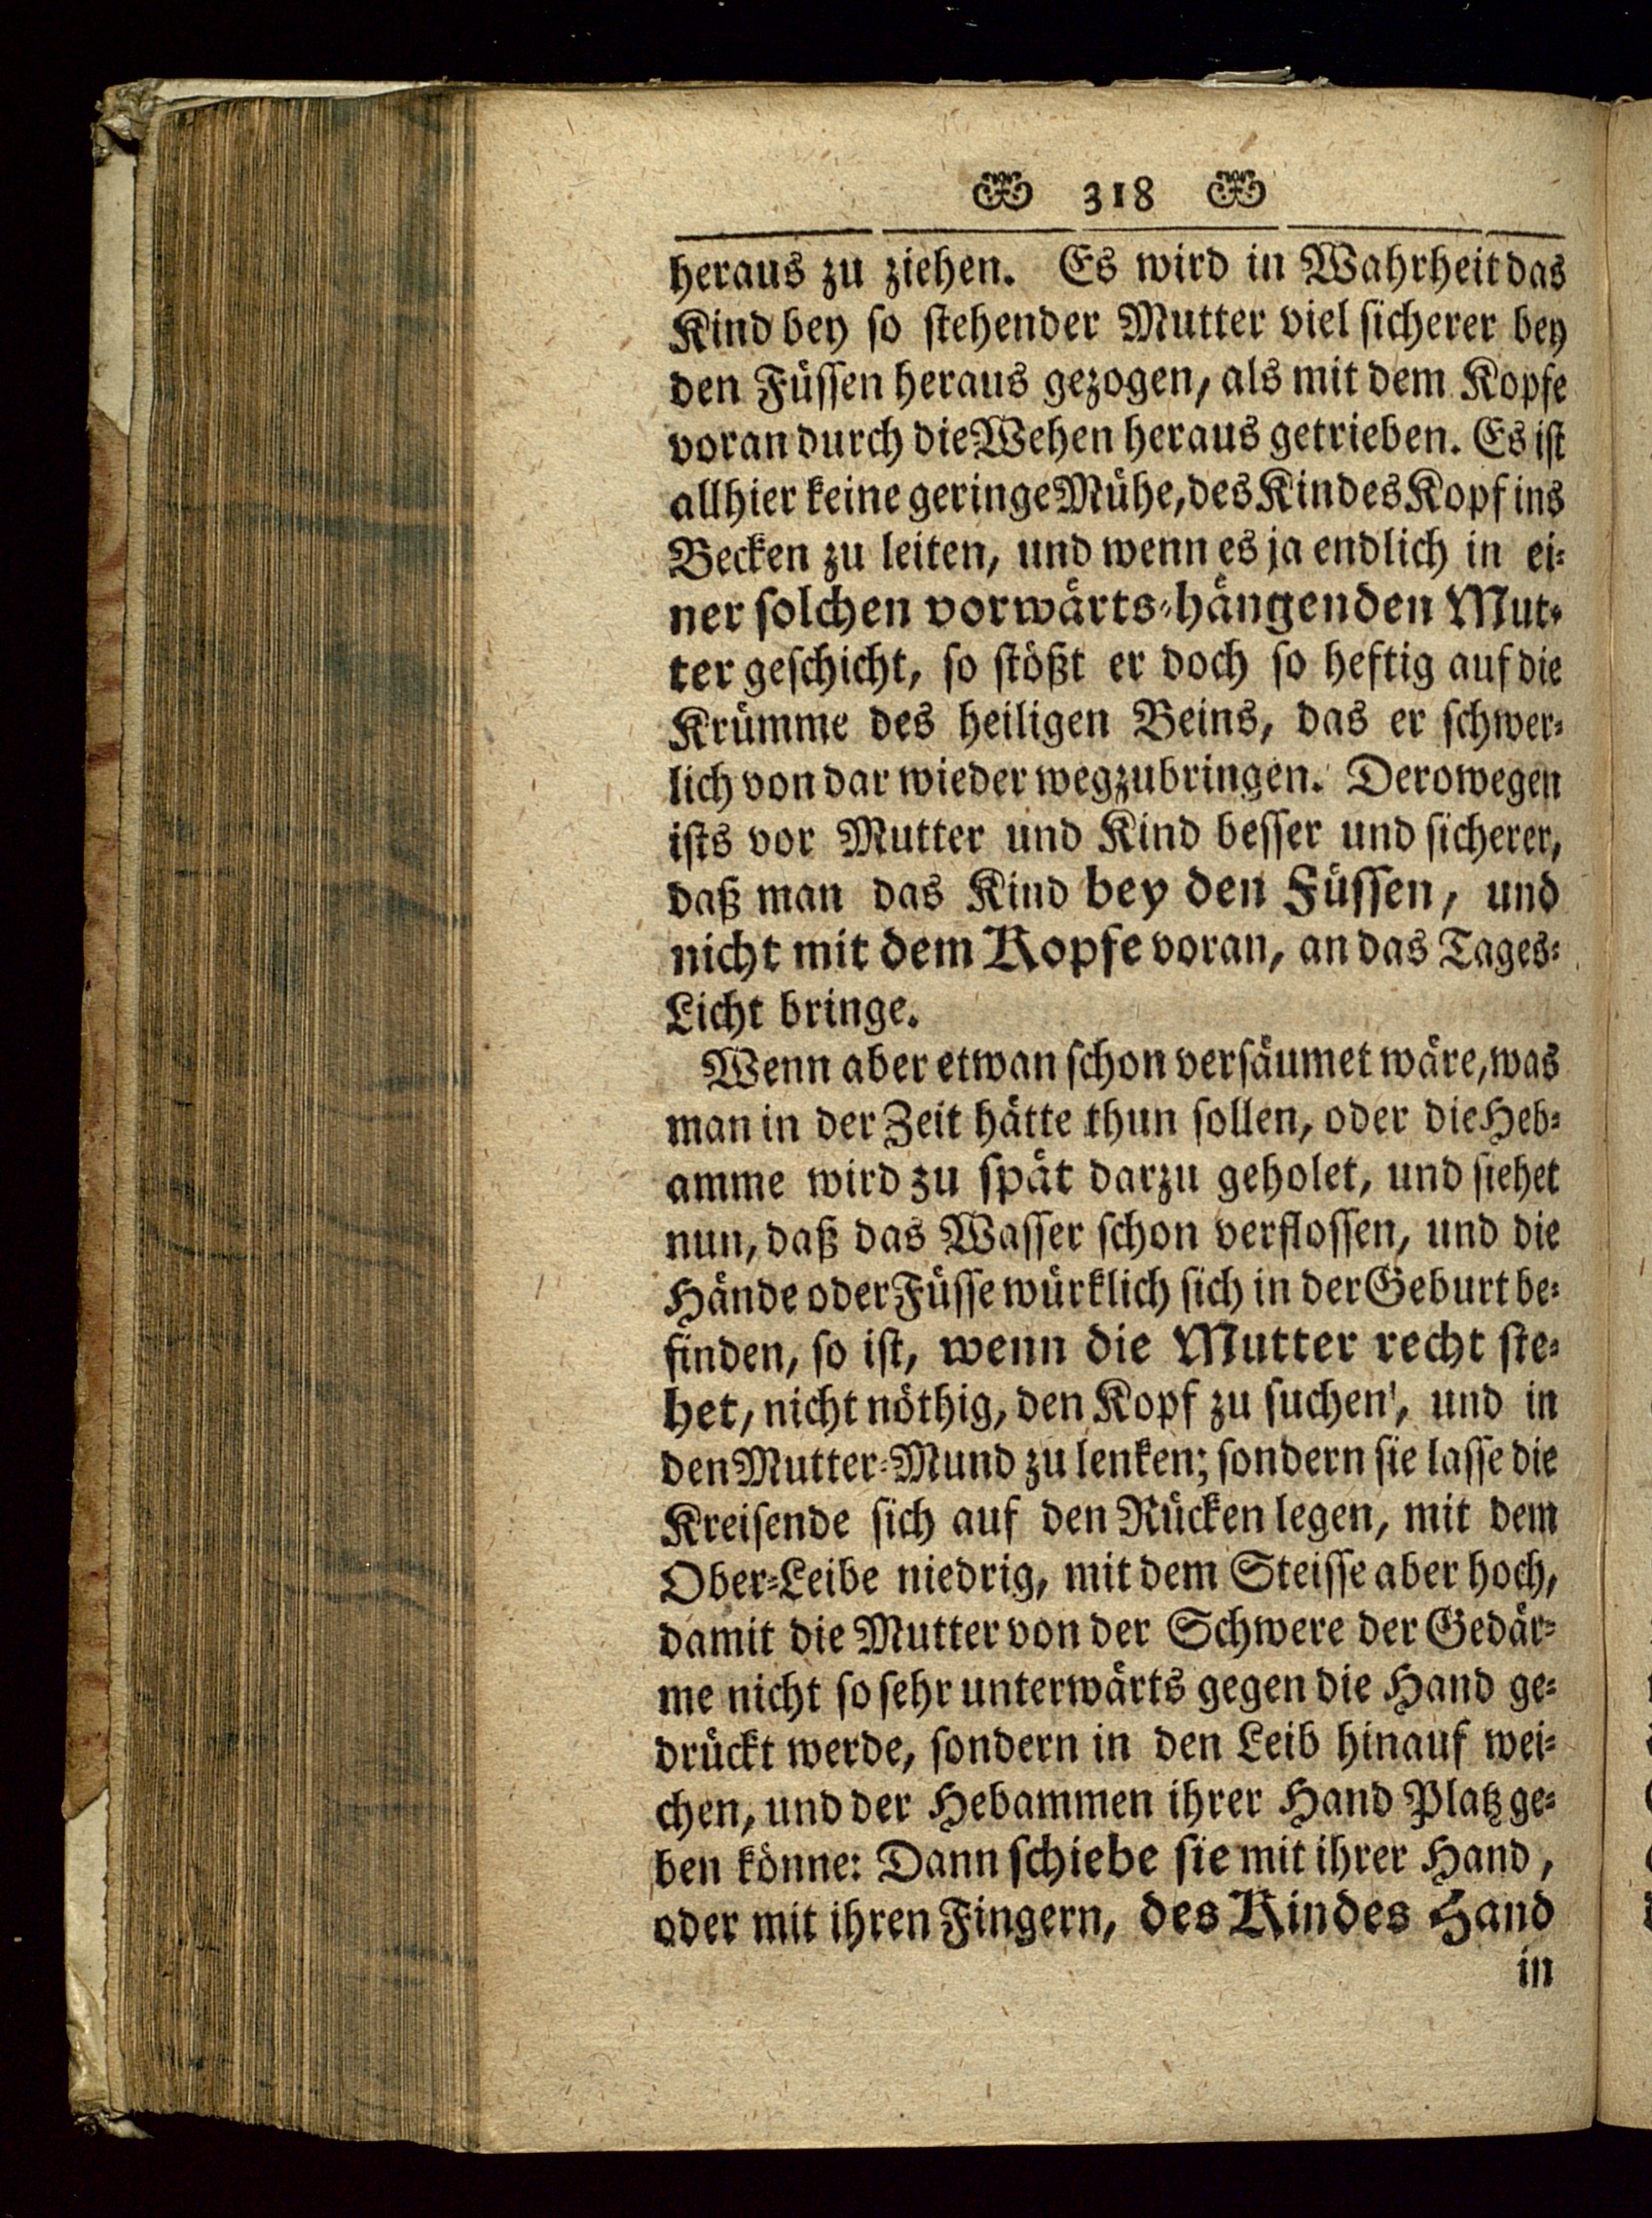 318
heraus zu ziehen. Es wird in Wahrheit das
Kind bey so stehender Mutter viel sicherer bey
den Füssen heraus gezogen, als mit dem Kopfe
voran durch die Wehen heraus getrieben. Es ist
allhier keine geringe Mühe, des Kindes Kopf ins
Becken zu leiten, und wenn es ja endlich in ei-
ner solchen vorwärts-hängenden Mut-
ter geschicht, so stößt er doch so heftig auf die
Krümme des heiligen Beins, das er schwer-
lich von dar wieder wegzubringen. Derowegen
ists vor Mutter und Kind besser und sicherer,
daß man das Kind bey den Füssen, und
nicht mit dem Kopfe voran, an das Tages-
Licht bringe.
Wenn aber etwan schon versäumet wäre, was
man in der Zeit hätte thun sollen, oder die Heb-
amme wird zu spät darzu geholet, und siehet
nun, daß das Wasser schon verflossen, und die
Hände oder Füsse würklich sich in der Geburt be-
finden, so ist, wenn die Mutter recht ste-
het, nicht nöthig, den Kopf zu suchen', und in
den Mutter-Mund zu lenken; sondern sie lasse die
Kreisende sich auf den Rücken legen, mit dem
Ober-Leibe niedrig, mit dem Steisse aber hoch,
damit die Mutter von der Schwere der Gedär-
me nicht so sehr unterwärts gegen die Hand ge-
drückt werde, sondern in den Leib hinauf wei-
chen, und der Hebammen ihrer Hand Platz ge-
ben könne: Dann schiebe sie mit ihrer Hand,
oder mit ihren Fingern, des Kindes Hand
in